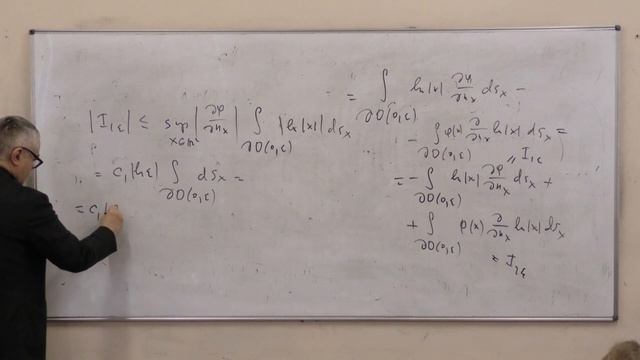 |I₁ε| ≤ sup_{x∈ℝ²} |∂φ/∂n_x| ∫_{∂O(0,ε)} |ln|x|| ds_x
= c₁|ln ε| ∫_{∂O(0,ε)} ds_x =
= c₁|
= ∫_{∂O(0,ε)} ln|x| ∂φ/∂n_x ds_x −
− ∫_{∂O(0,ε)} φ(x) ∂/∂n_x ln|x| ds_x =
= − ∫_{∂O(0,ε)} ln|x| ∂φ/∂n_x ds_x +
" I₁ε
+ ∫_{∂O(0,ε)} φ(x) ∂/∂n_x ln|x| ds_x
= I₂ε